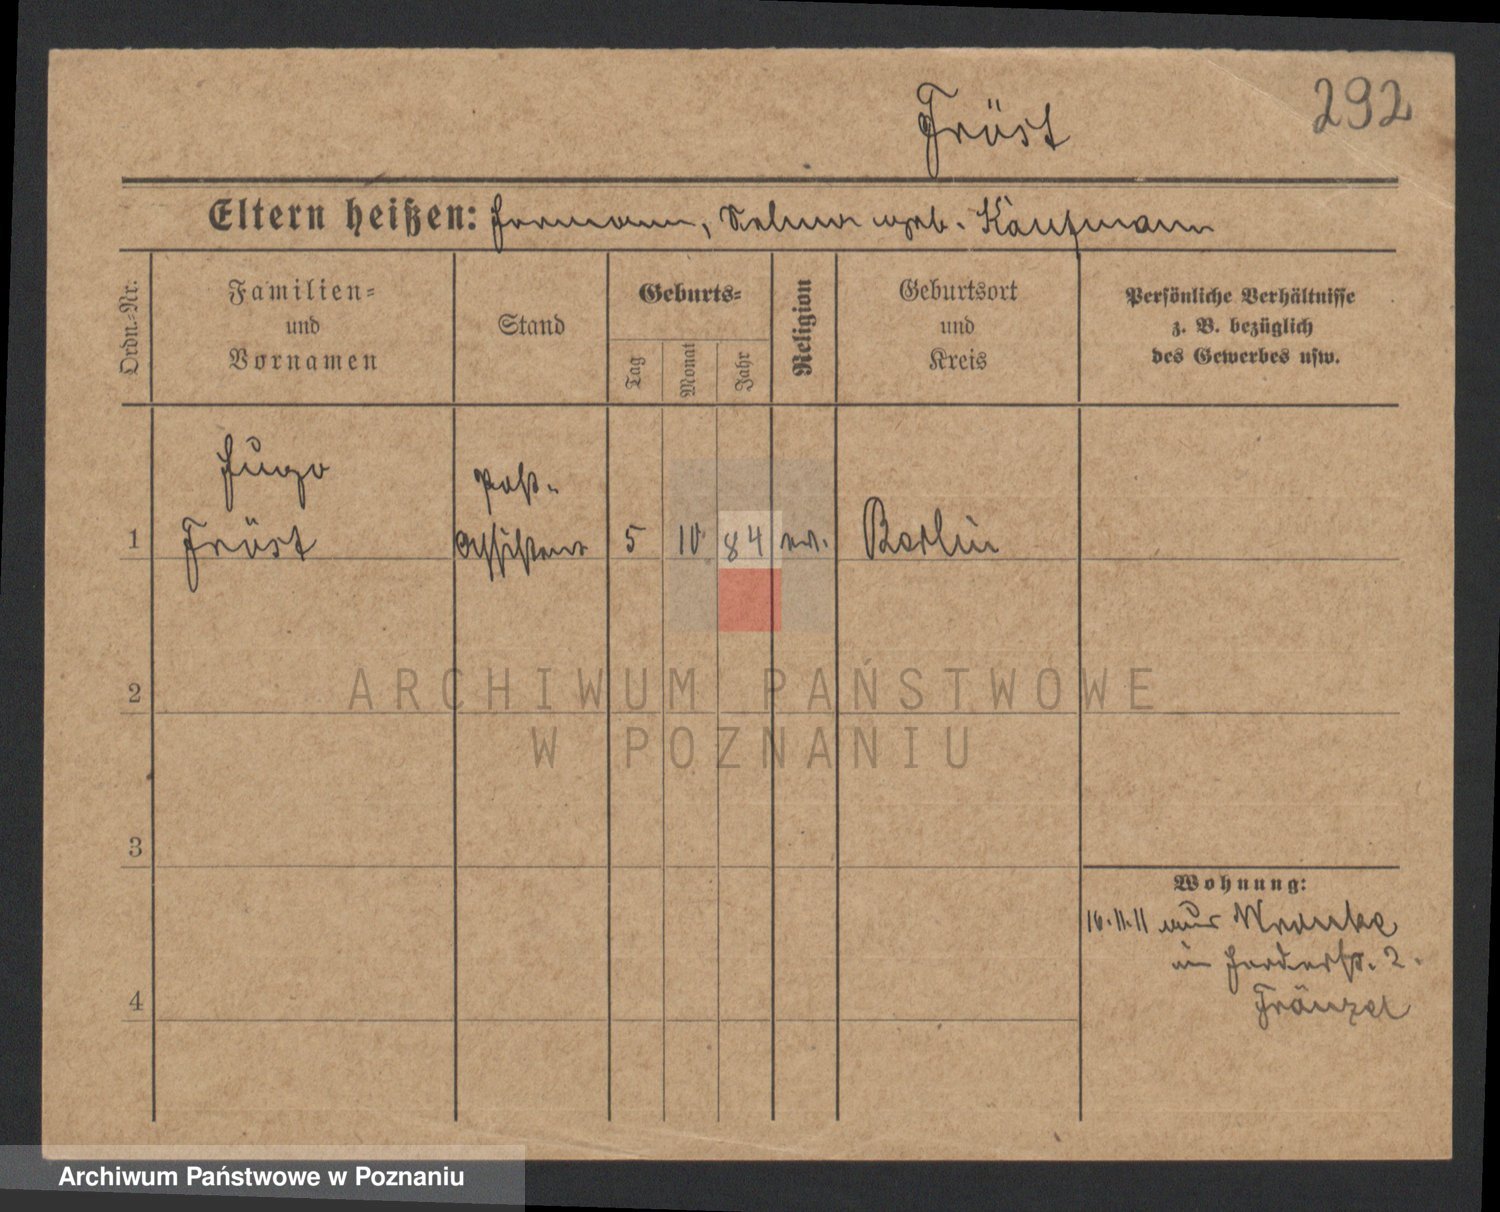 292
Fröst
Eltern heißen: Hermann, Selma geb. Kaufmann
Ordn.-Nr.
Familien-
und
Vornamen
Stand
Geburts-
Tag
Monat
Jahr
Religion
Geburtsort
und
Kreis
Persönliche Verhältnisse
z. B. bezüglich
des Gewerbes usw.
Hugo
Post-
1 Fröst Assistent 5 10 84 ev. Berlin
ARCHIWUM PAŃSTWOWE
2
W POZNANIU
3
Wohnung:
16.11.11 aus
2.
4 Fränzel
Archiwum Państwowe w Poznaniu